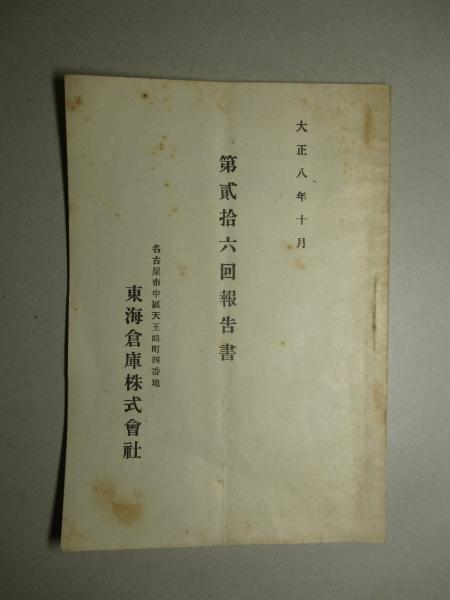 大正八年十月
第貳拾六回報告書
名古屋市中區天王崎町四番地
東海倉庫株式會社